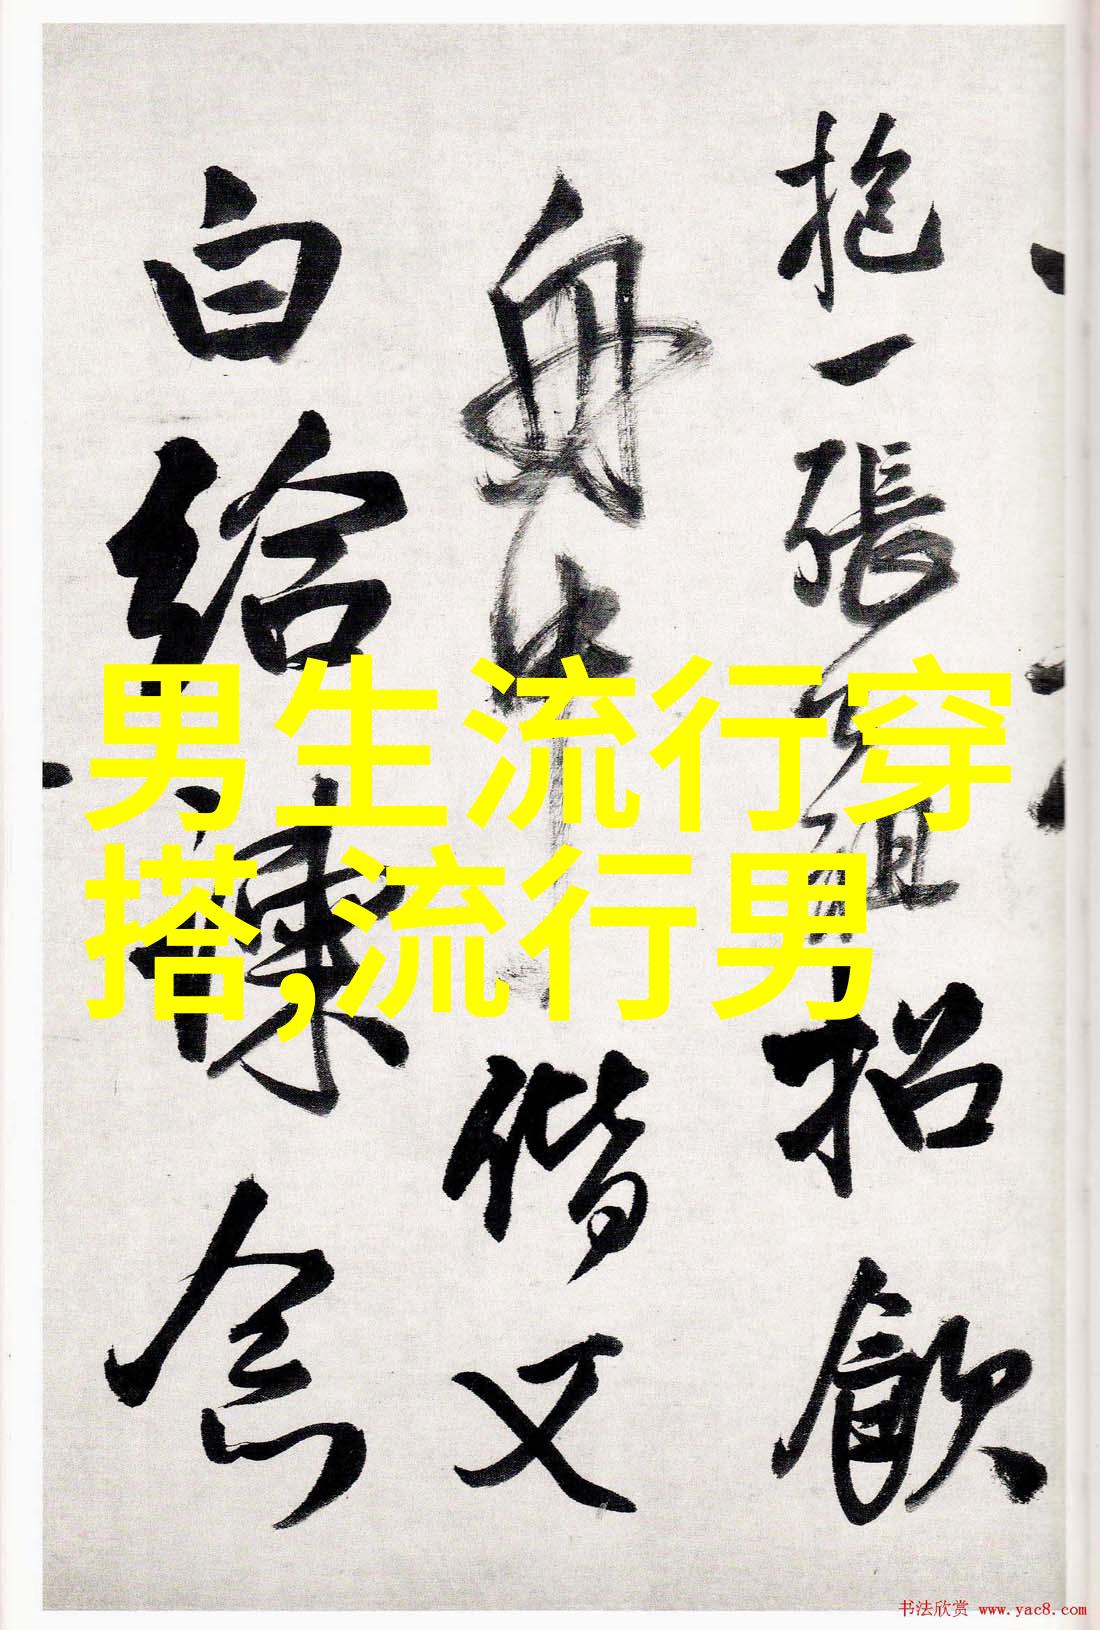 抱一張
招飲
舟中
偕又
白給諫
念
男生流行穿
搭,流行男
书法欣赏 www.yac8.com